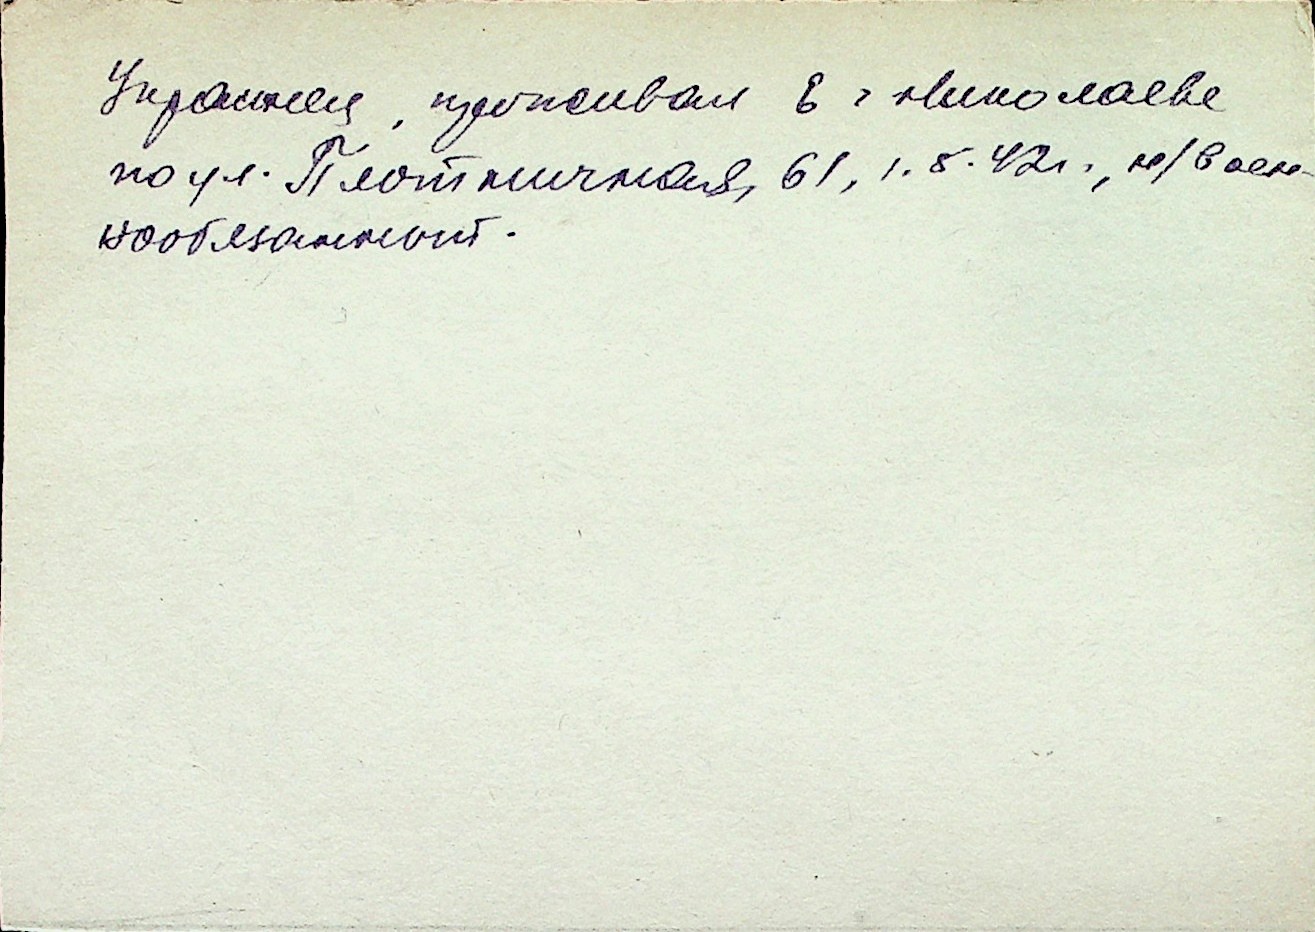 Украинец, проживал в г. Николаеве
по ул. Плотничная, 61, 1.5.42г., н/воен-
нообязанный.